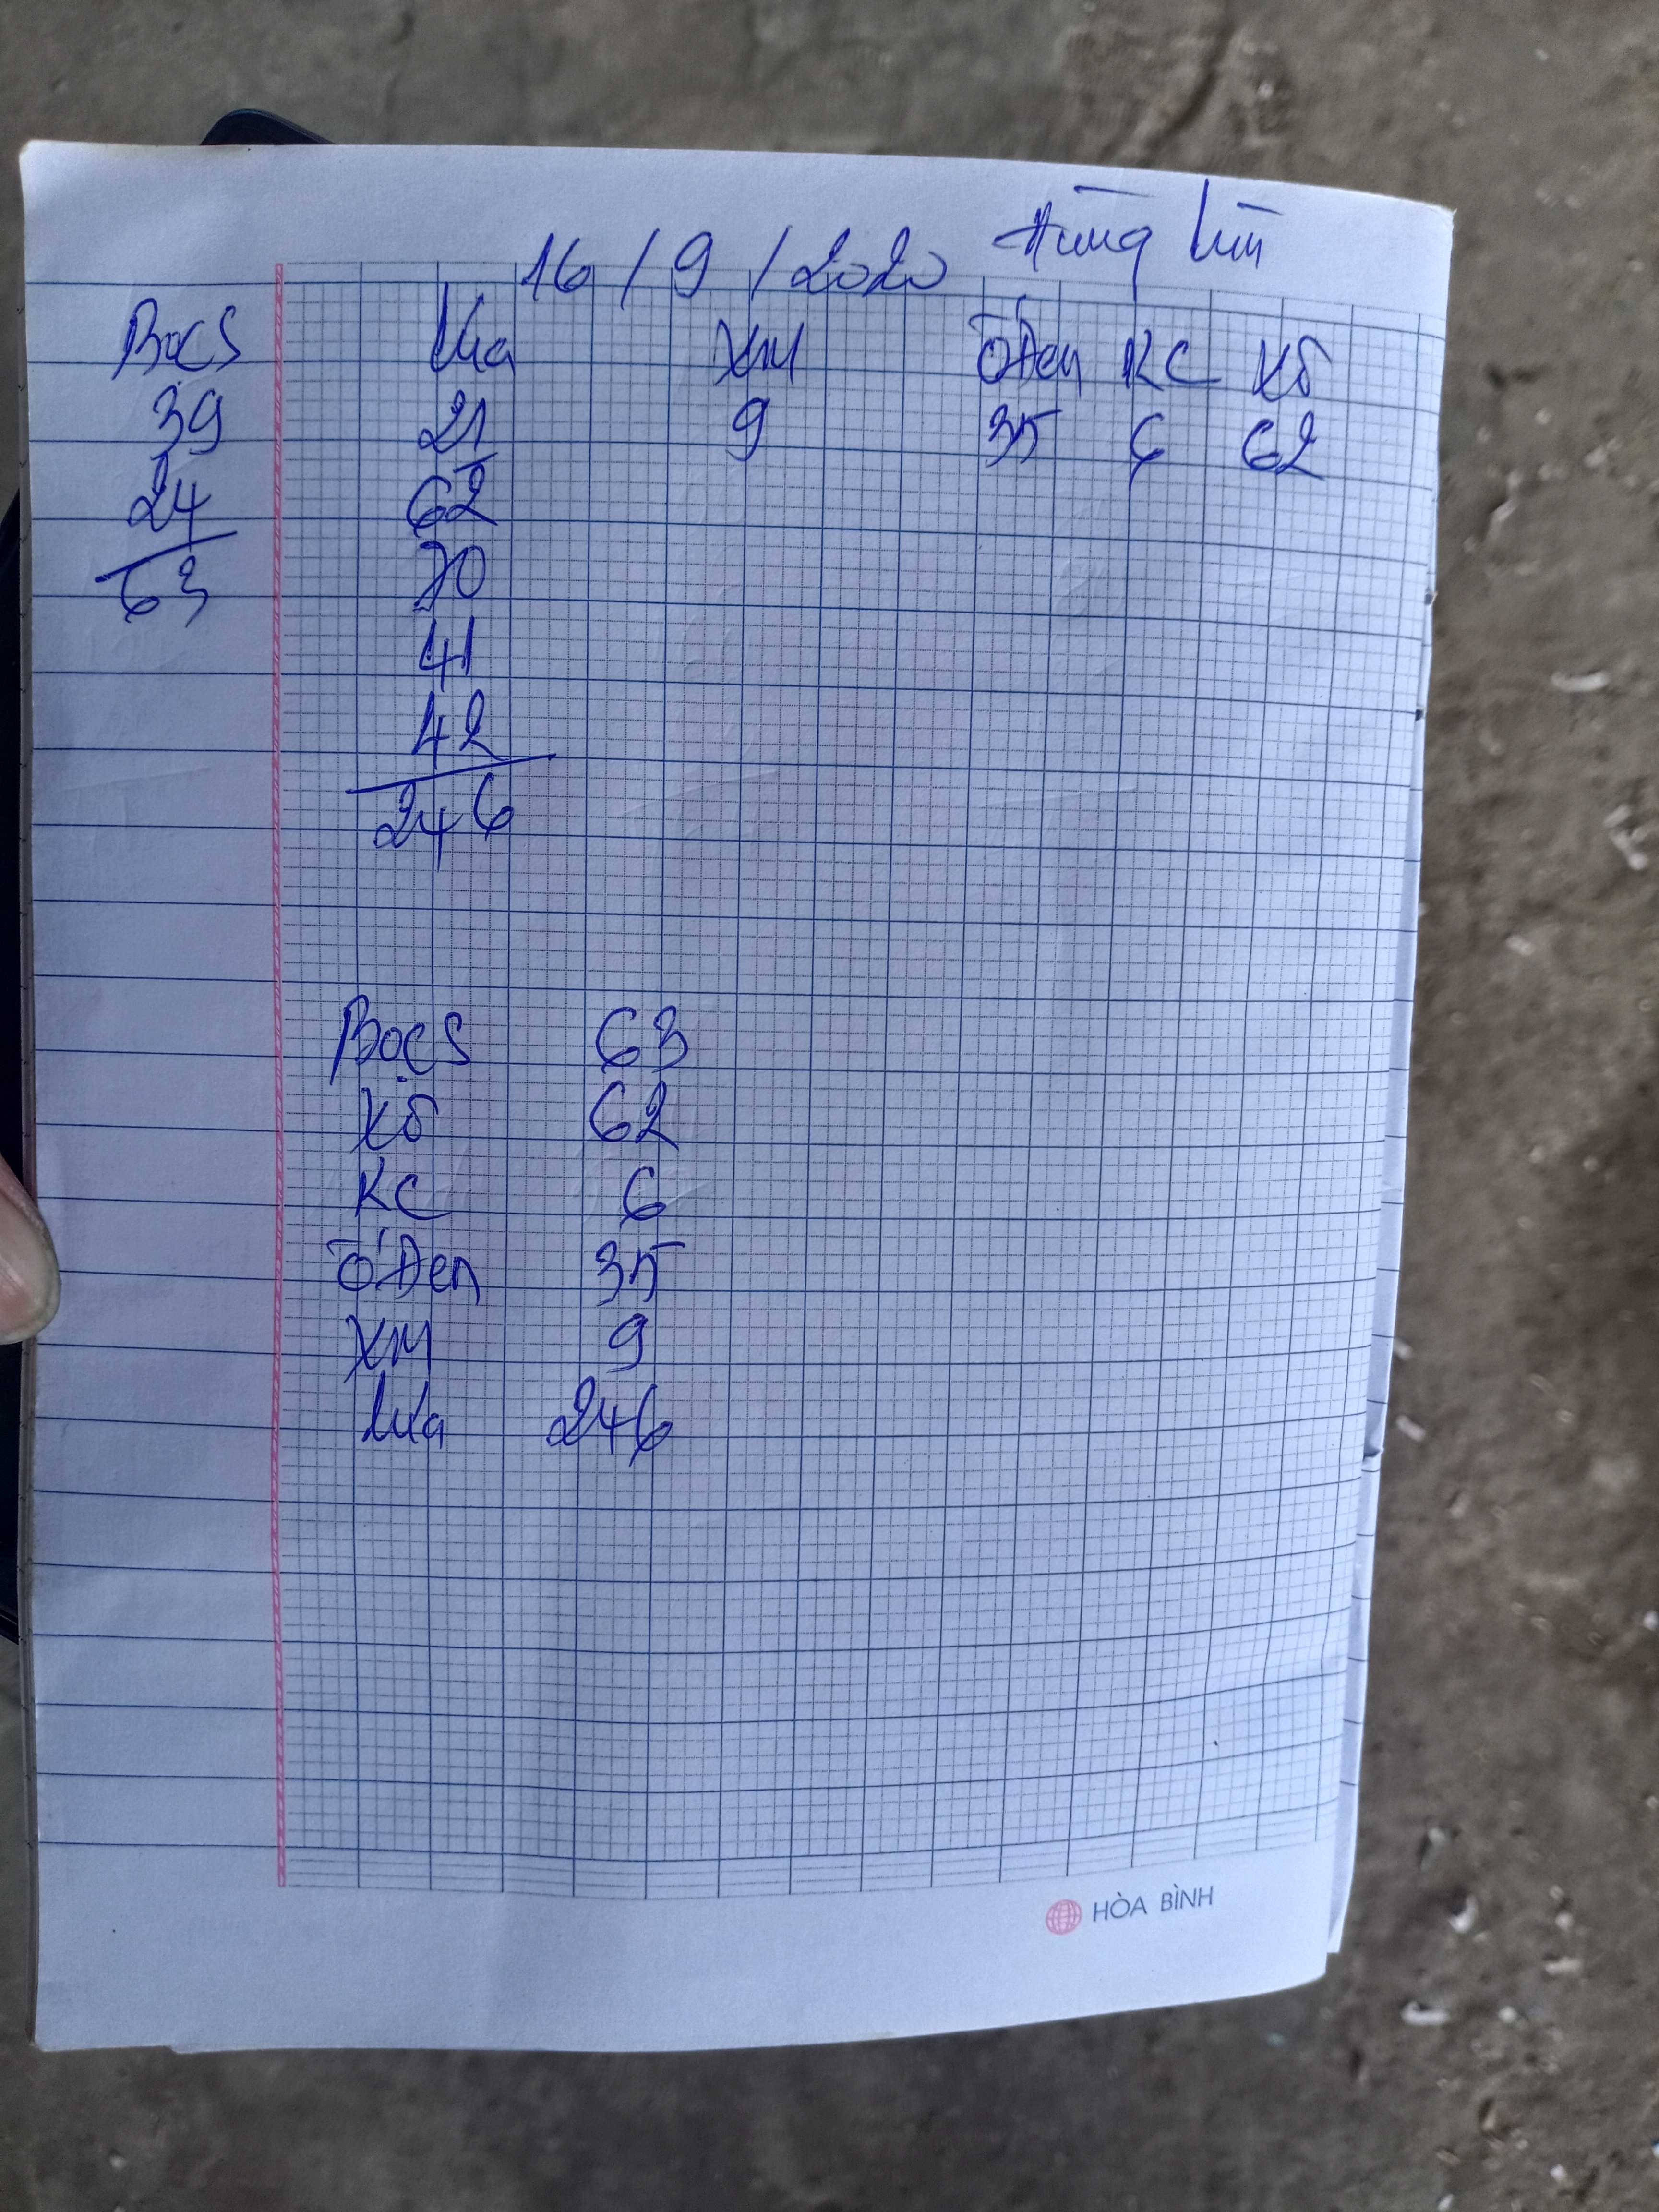 16/9/2020 Hùng lùn
Bọc S lụa XM Ố Đen KC Xô
39 21 9 35 6 62
24 62
63 70
41
42
246
Bọc S 63
Xô 62
KC 6
Ố Đen 35
XM 9
lụa 246
HÒA BÌNH